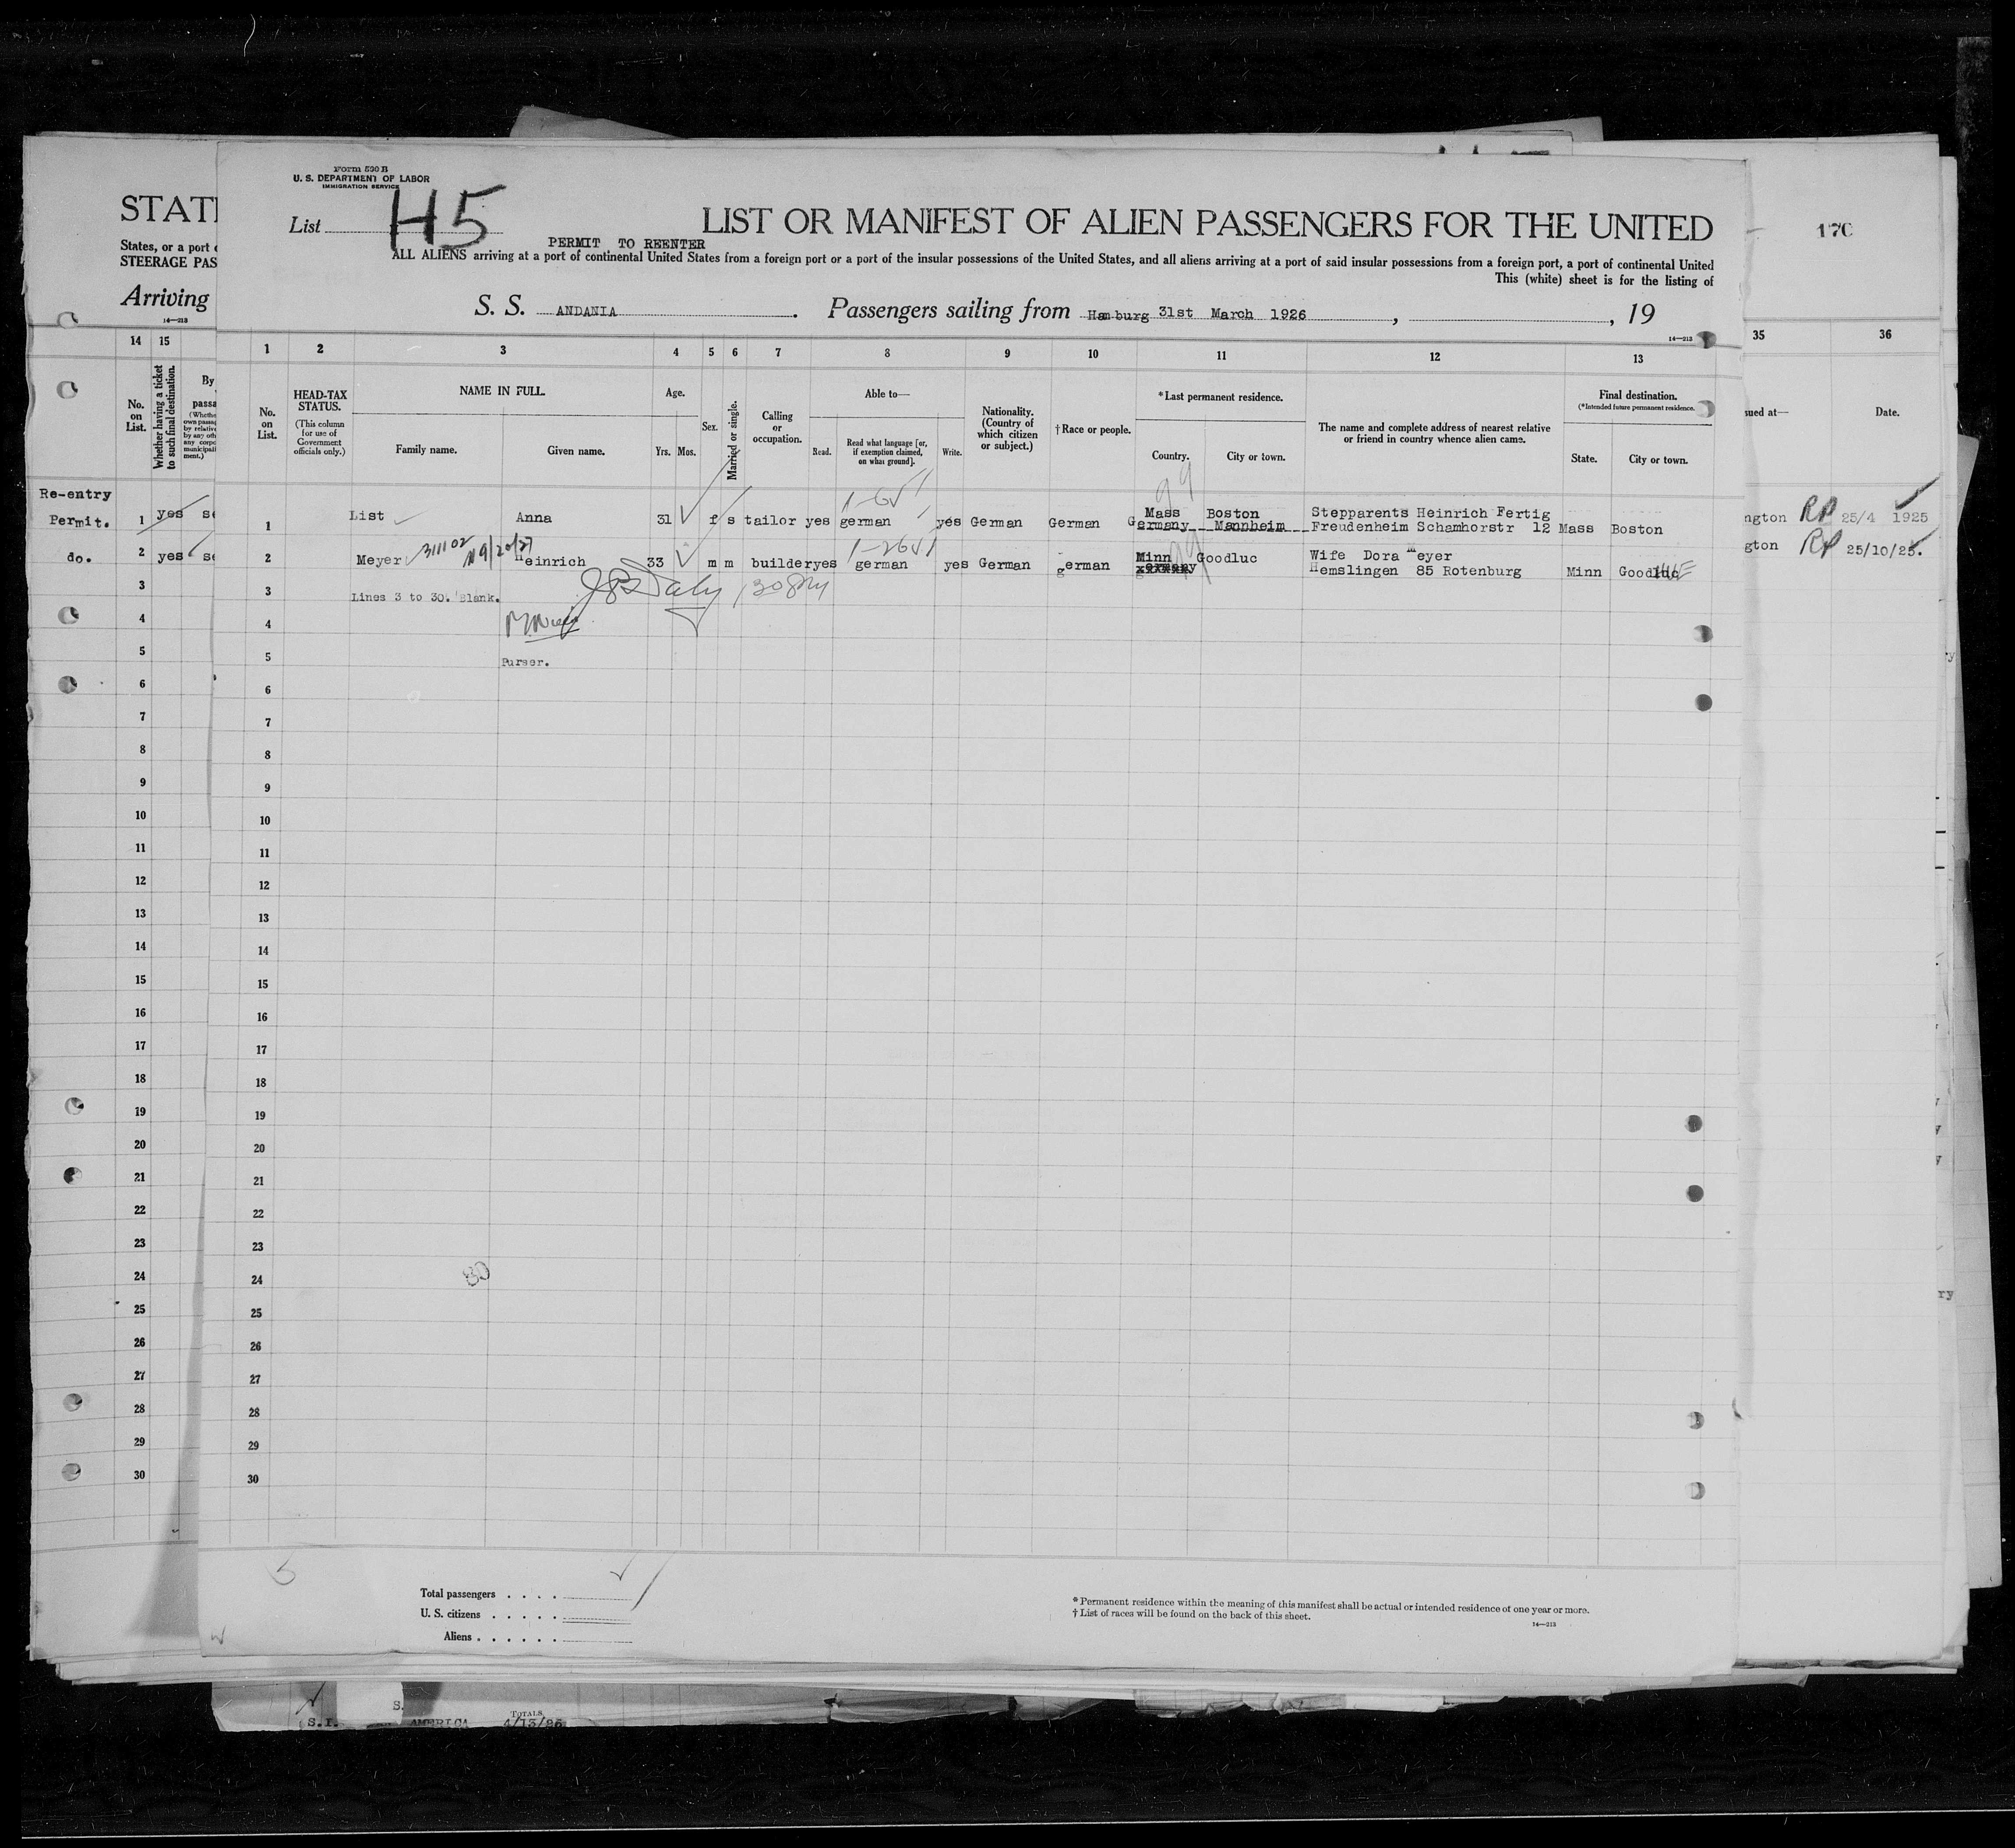 Form 500 B
U. S. DEPARTMENT OF LABOR
IMMIGRATION SERVICE
List H5
LIST OR MANIFEST OF ALIEN PASSENGERS FOR THE UNITED
PERMIT TO REENTER
ALL ALIENS arriving at a port of continental United States from a foreign port or a port of the insular possessions of the United States, and all aliens arriving at a port of said insular possessions from a foreign port, a port of continental United
This (white) sheet is for the listing of
S. S. ANDANIA. Passengers sailing from Hamburg 31st March 1926, , 19
14—213
STATE
States, or a port o
STEERAGE PAS
Arriving
14—213
170
14 15
1 2 3 4 5 6 7 8 9 10 11 12 13
35 36
No. on List.
Whether having a ticket to such final destination.
By
passa
No. on List.
HEAD-TAX STATUS.
(This column for use of Government officials only.)
NAME IN FULL.
Family name.
Given name.
Age.
Yrs. Mos.
Sex.
Married or single.
Calling or occupation.
Able to—
Read.
Read what language [or, if exemption claimed, on what ground].
Write.
Nationality. (Country of which citizen or subject.)
†Race or people.
*Last permanent residence.
Country.
City or town.
The name and complete address of nearest relative or friend in country whence alien came.
Final destination.
(*Intended future permanent residence.)
State.
City or town.
sued at—
Date.
Re-entry
Permit. 1 yes se
1 List Anna 31 f s tailor yes german yes German German Mass Boston Stepparents Heinrich Fertig
Germany Mannheim Freudenheim Schamhorstr 12 Mass Boston
ngton RP 25/4 1925
do. 2 yes se
2 Meyer 311102 Heinrich 33 m m builder yes german yes German german Minn Goodluc Wife Dora Meyer
Hemslingen 85 Rotenburg Minn Goodluc
gton RP 25/10/25.
3 Lines 3 to 30. Blank.
4
5 Purser.
6
7
8
9
10
11
12
13
14
15
16
17
18
19
20
21
22
23
24
25
26
27
28
29
30
80
Total passengers
U. S. citizens
Aliens
*Permanent residence within the meaning of this manifest shall be actual or intended residence of one year or more.
†List of races will be found on the back of this sheet.
14—213
S.
TOTALS
S.I. AMERICA 4/13/26